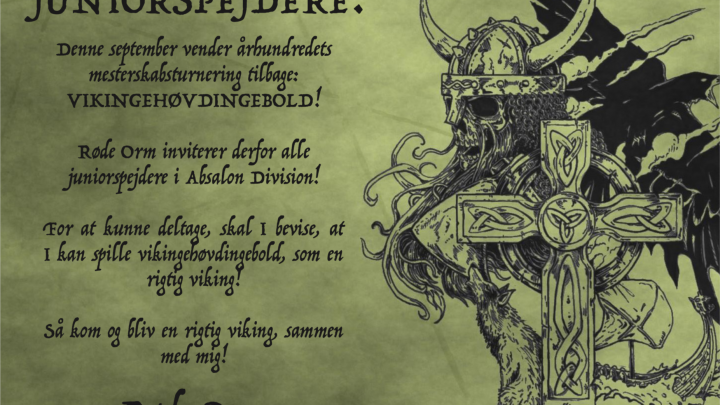 JUNIORSPEJDERE!
Denne september vender århundredets
mesterskabsturnering tilbage:
VIKINGEHØVDINGEBOLD!
Røde Orm inviterer derfor alle
juniorspejdere i Absalon Division!
For at kunne deltage, skal I bevise, at
I kan spille vikingehøvdingebold, som en
rigtig viking!
Så kom og bliv en rigtig viking, sammen
med mig!